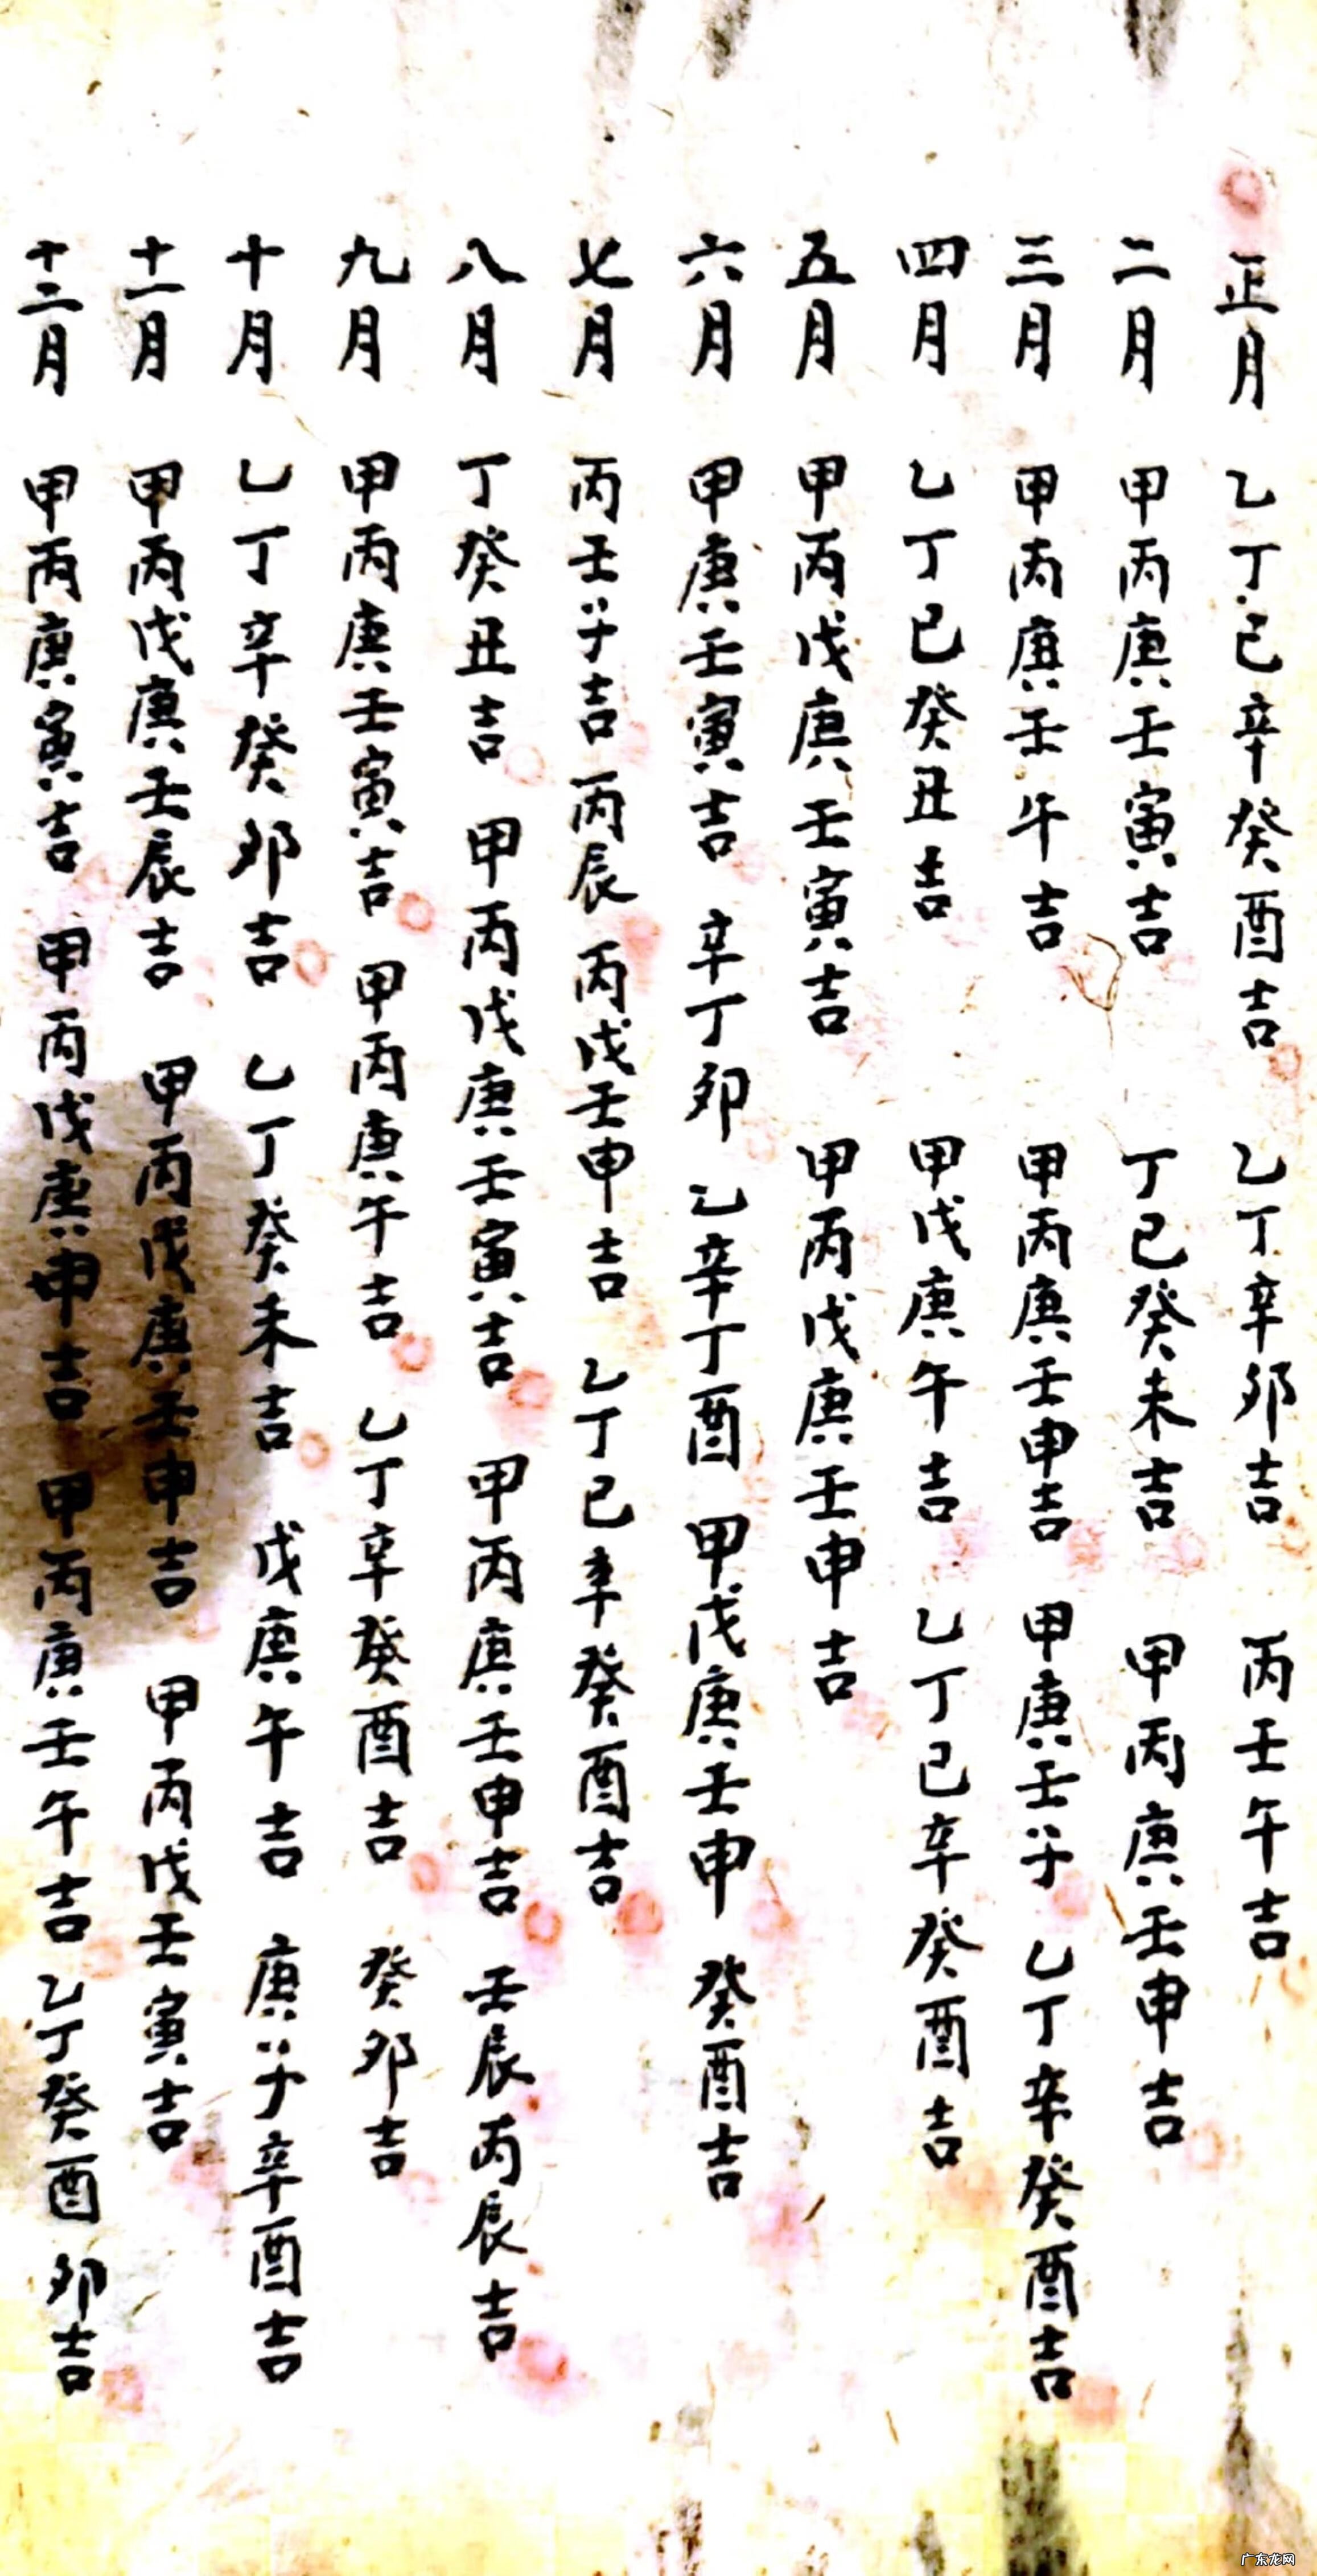 正月 乙丁己辛癸酉吉 乙丁辛卯吉 丙壬午吉
二月 甲丙庚壬寅吉 丁己癸未吉 甲丙庚壬申吉
三月 甲丙庚壬午吉 甲丙庚壬申吉 甲庚壬子 乙丁辛癸酉吉
四月 乙丁己癸丑吉 甲戊庚午吉 乙丁己辛癸酉吉
五月 甲丙戊庚壬寅吉 甲丙戊庚壬申吉
六月 甲庚壬寅吉 辛丁卯 乙辛丁酉 甲戊庚壬申 癸酉吉
七月 丙壬子吉 丙辰 丙戊壬申吉 乙丁己辛癸酉吉
八月 丁癸丑吉 甲丙戊庚壬寅吉 甲丙庚壬申吉 壬辰丙辰吉
九月 甲丙庚壬寅吉 甲丙庚午吉 乙丁辛癸酉吉 癸卯吉
十月 乙丁辛癸卯吉 乙丁癸未吉 戊庚午吉 庚子辛酉吉
十一月 甲丙戊庚壬辰吉 甲丙戊庚壬申吉 甲丙戊壬寅吉
十二月 甲丙庚寅吉 甲丙戊庚申吉 甲丙庚壬午吉 乙丁癸酉 卯吉
广东龙网